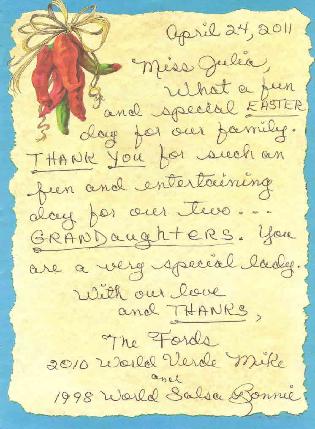 April 24, 2011
Miss Julia,
What a fun
and special EASTER
day for our family.
THANK YOU for such an
fun and entertaining
day for our two...
GRANDaughTERS. You
are a very special lady.
With our love
and THANKS,
The Fords
2010 World Verde Mike
and
1998 World Salsa Bonnie